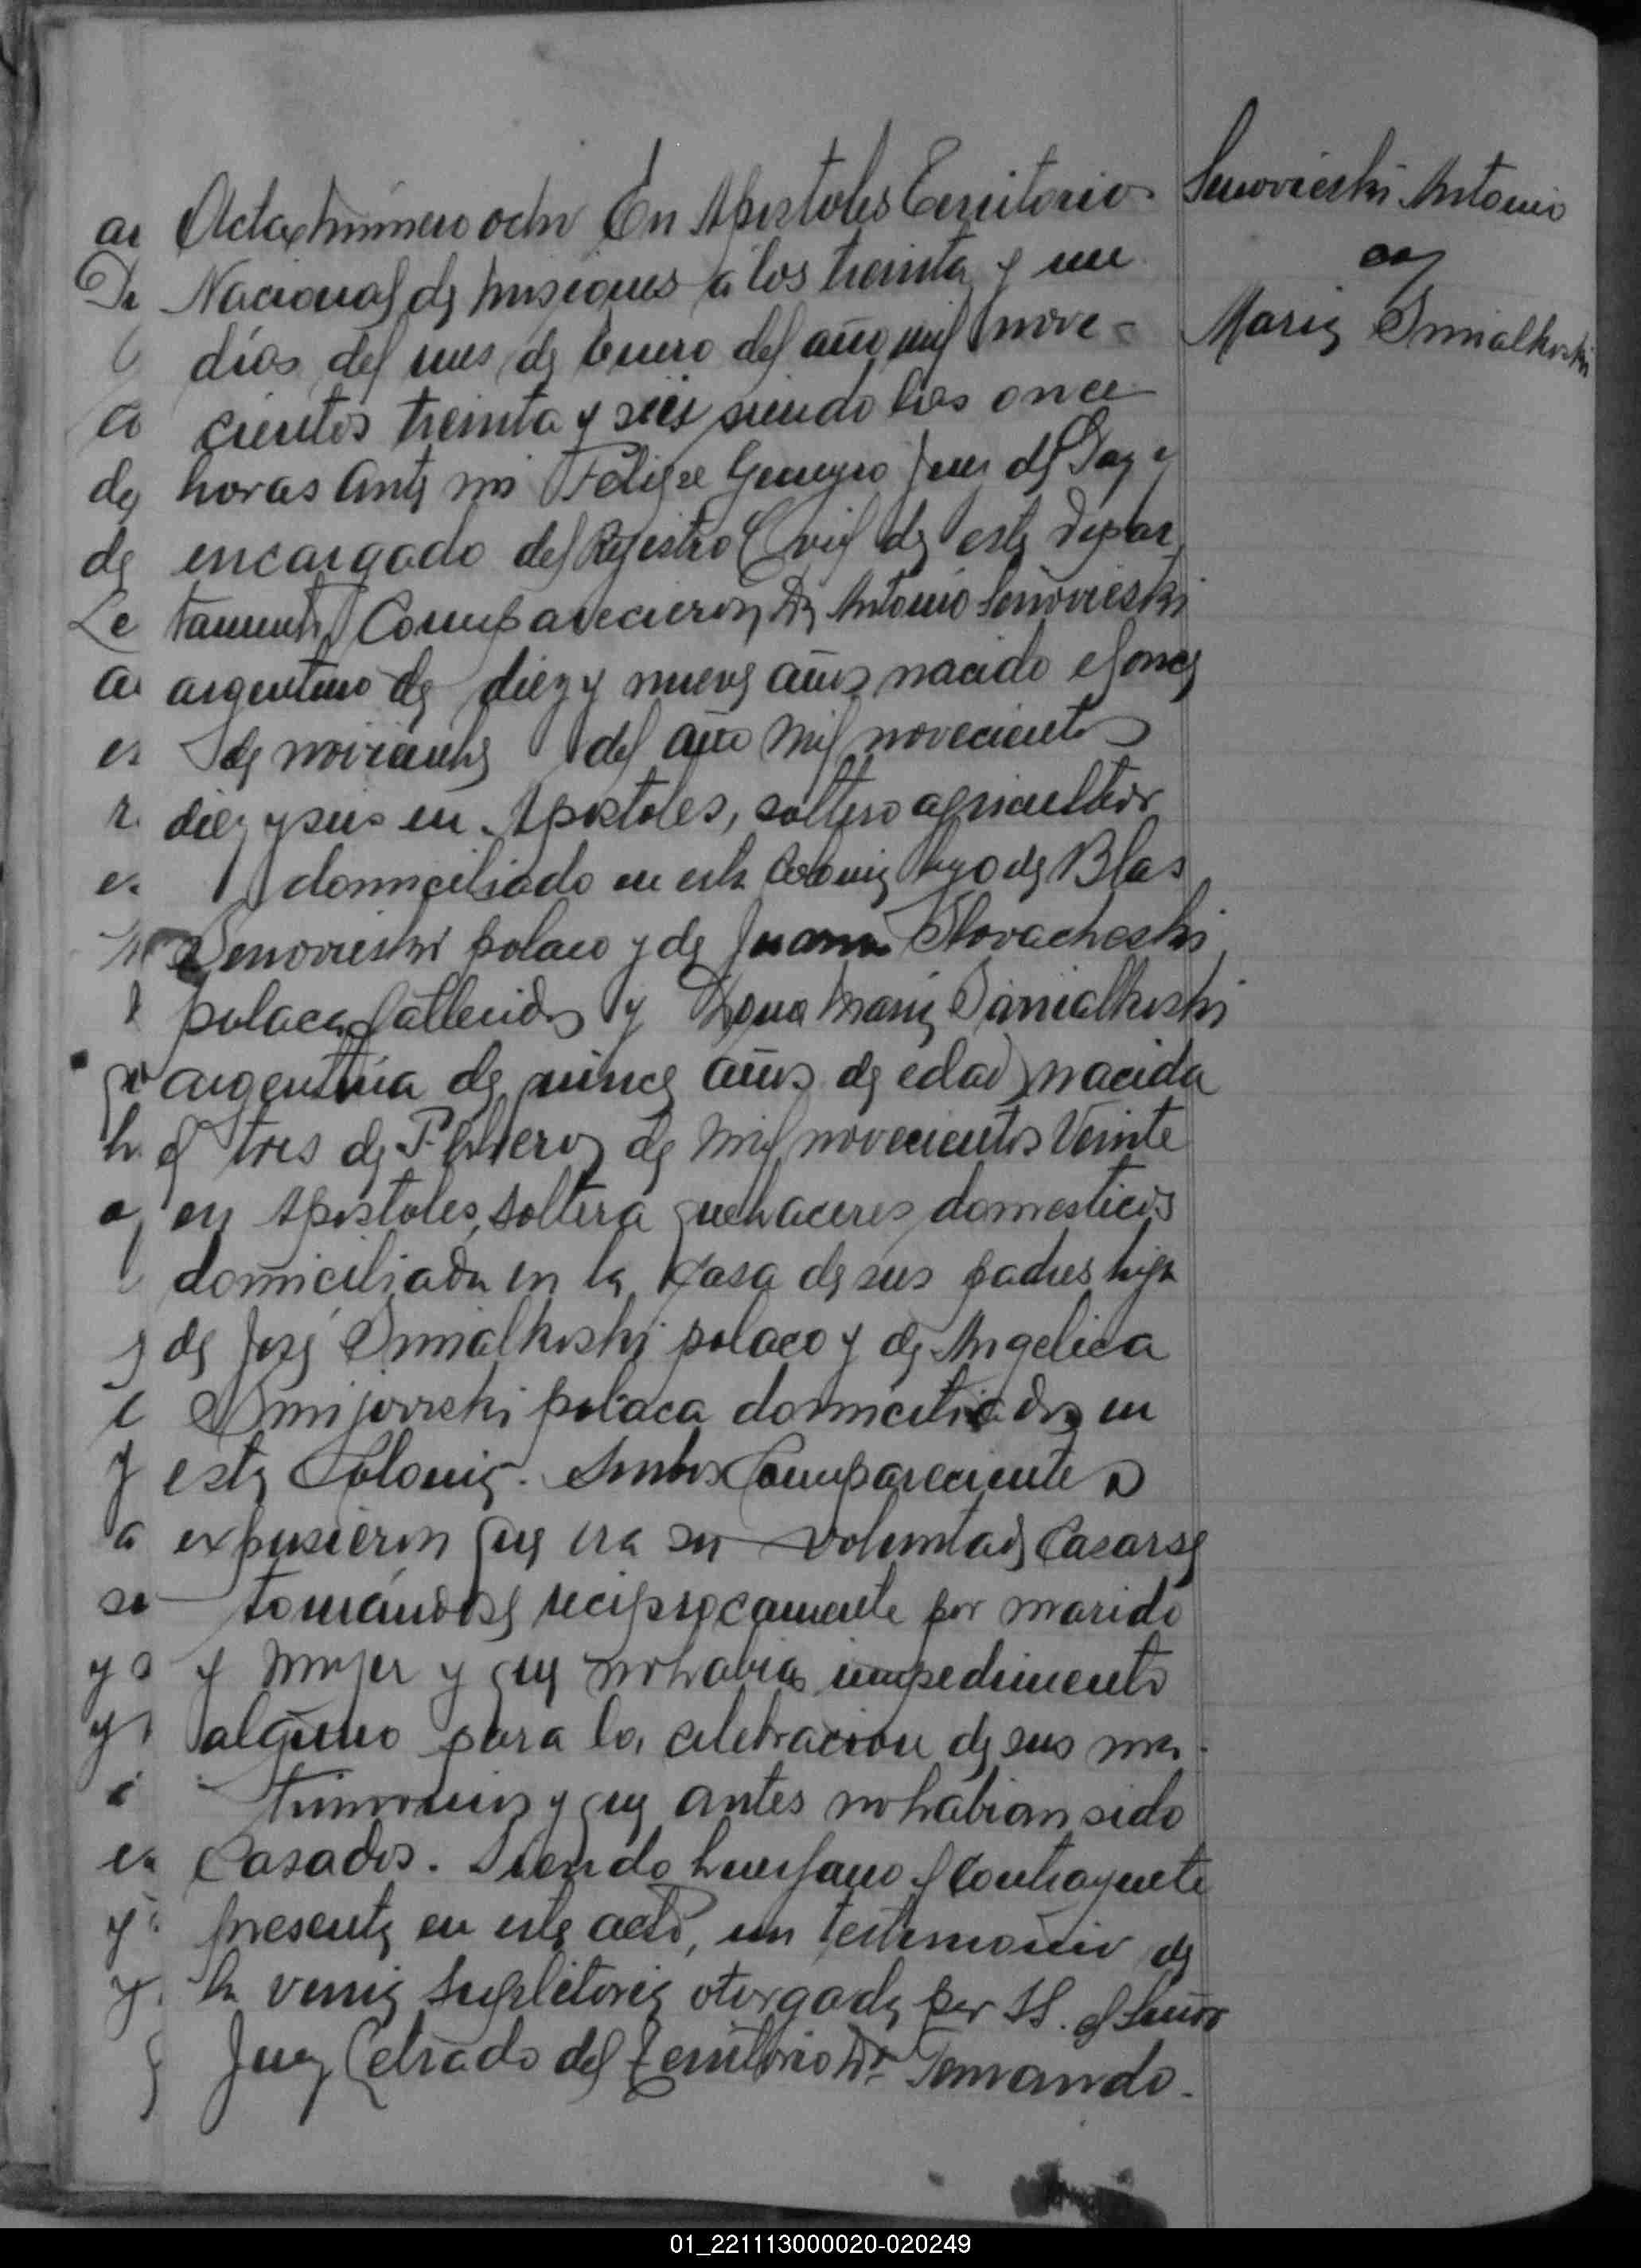 Senovieski Antonio
con
Maria Smialkoski
Acta número ocho En Apostoles Territorio
Nacional de Misiones a los treinta y un
días del mes de Enero del año mil nove-
cientos treinta y seis siendo las once
horas Ante mi Felipe Juez de Paz y
encargado del Rejistro Civil de este depar
tamento Comparecieron Dn Antonio Senovieski
argentino de diez y nueve años nacido el once
de noviembre del año mil novecientos
diez y seis en Apostoles, soltero agricultor
domiciliado en esta Colonia hijo de Blas
Senovieski polaco y de Juana Slovacheski
polaca fallecidos y Dona Maria Smialkoski
argentina de quince años de edad nacida
el tres de Febrero de mil novecientos Veinte
en Apostoles, soltera quehaceres domesticos
domiciliada en la Casa de sus padres hija
de José Smialkoski polaco y de Angelica
Smijovski polaca domiciliados en
esta Colonia. Ambos Comparecientes
expusieron que era su voluntad Casarse
tomándose reciprocamente por marido
y mujer y que no habia impedimento
alguno para la celebracion de sus ma-
trimonio y que antes no habian sido
Casados. Siendo huerfano el Contrayente
presenta en este acto, un testimonio de
la venia supletoria otorgada por SS. el Señor
Juez Letrado del Territorio Dr